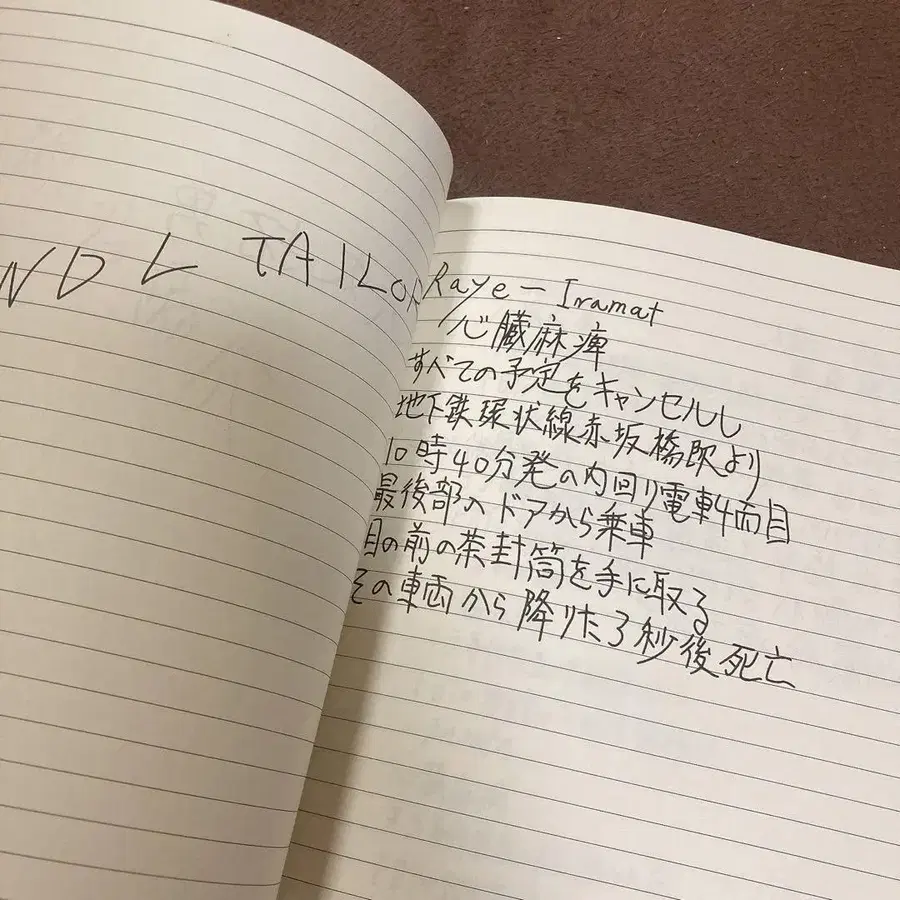 ND L TAILOR
Raye－Iramat
心臓麻痺
すべての予定をキャンセルし
地下鉄環状線赤坂橋駅より
10時40分発の内回り電車4両目
最後部のドアから乗車
目の前の茶封筒を手に取る
その車両から降りた3秒後死亡